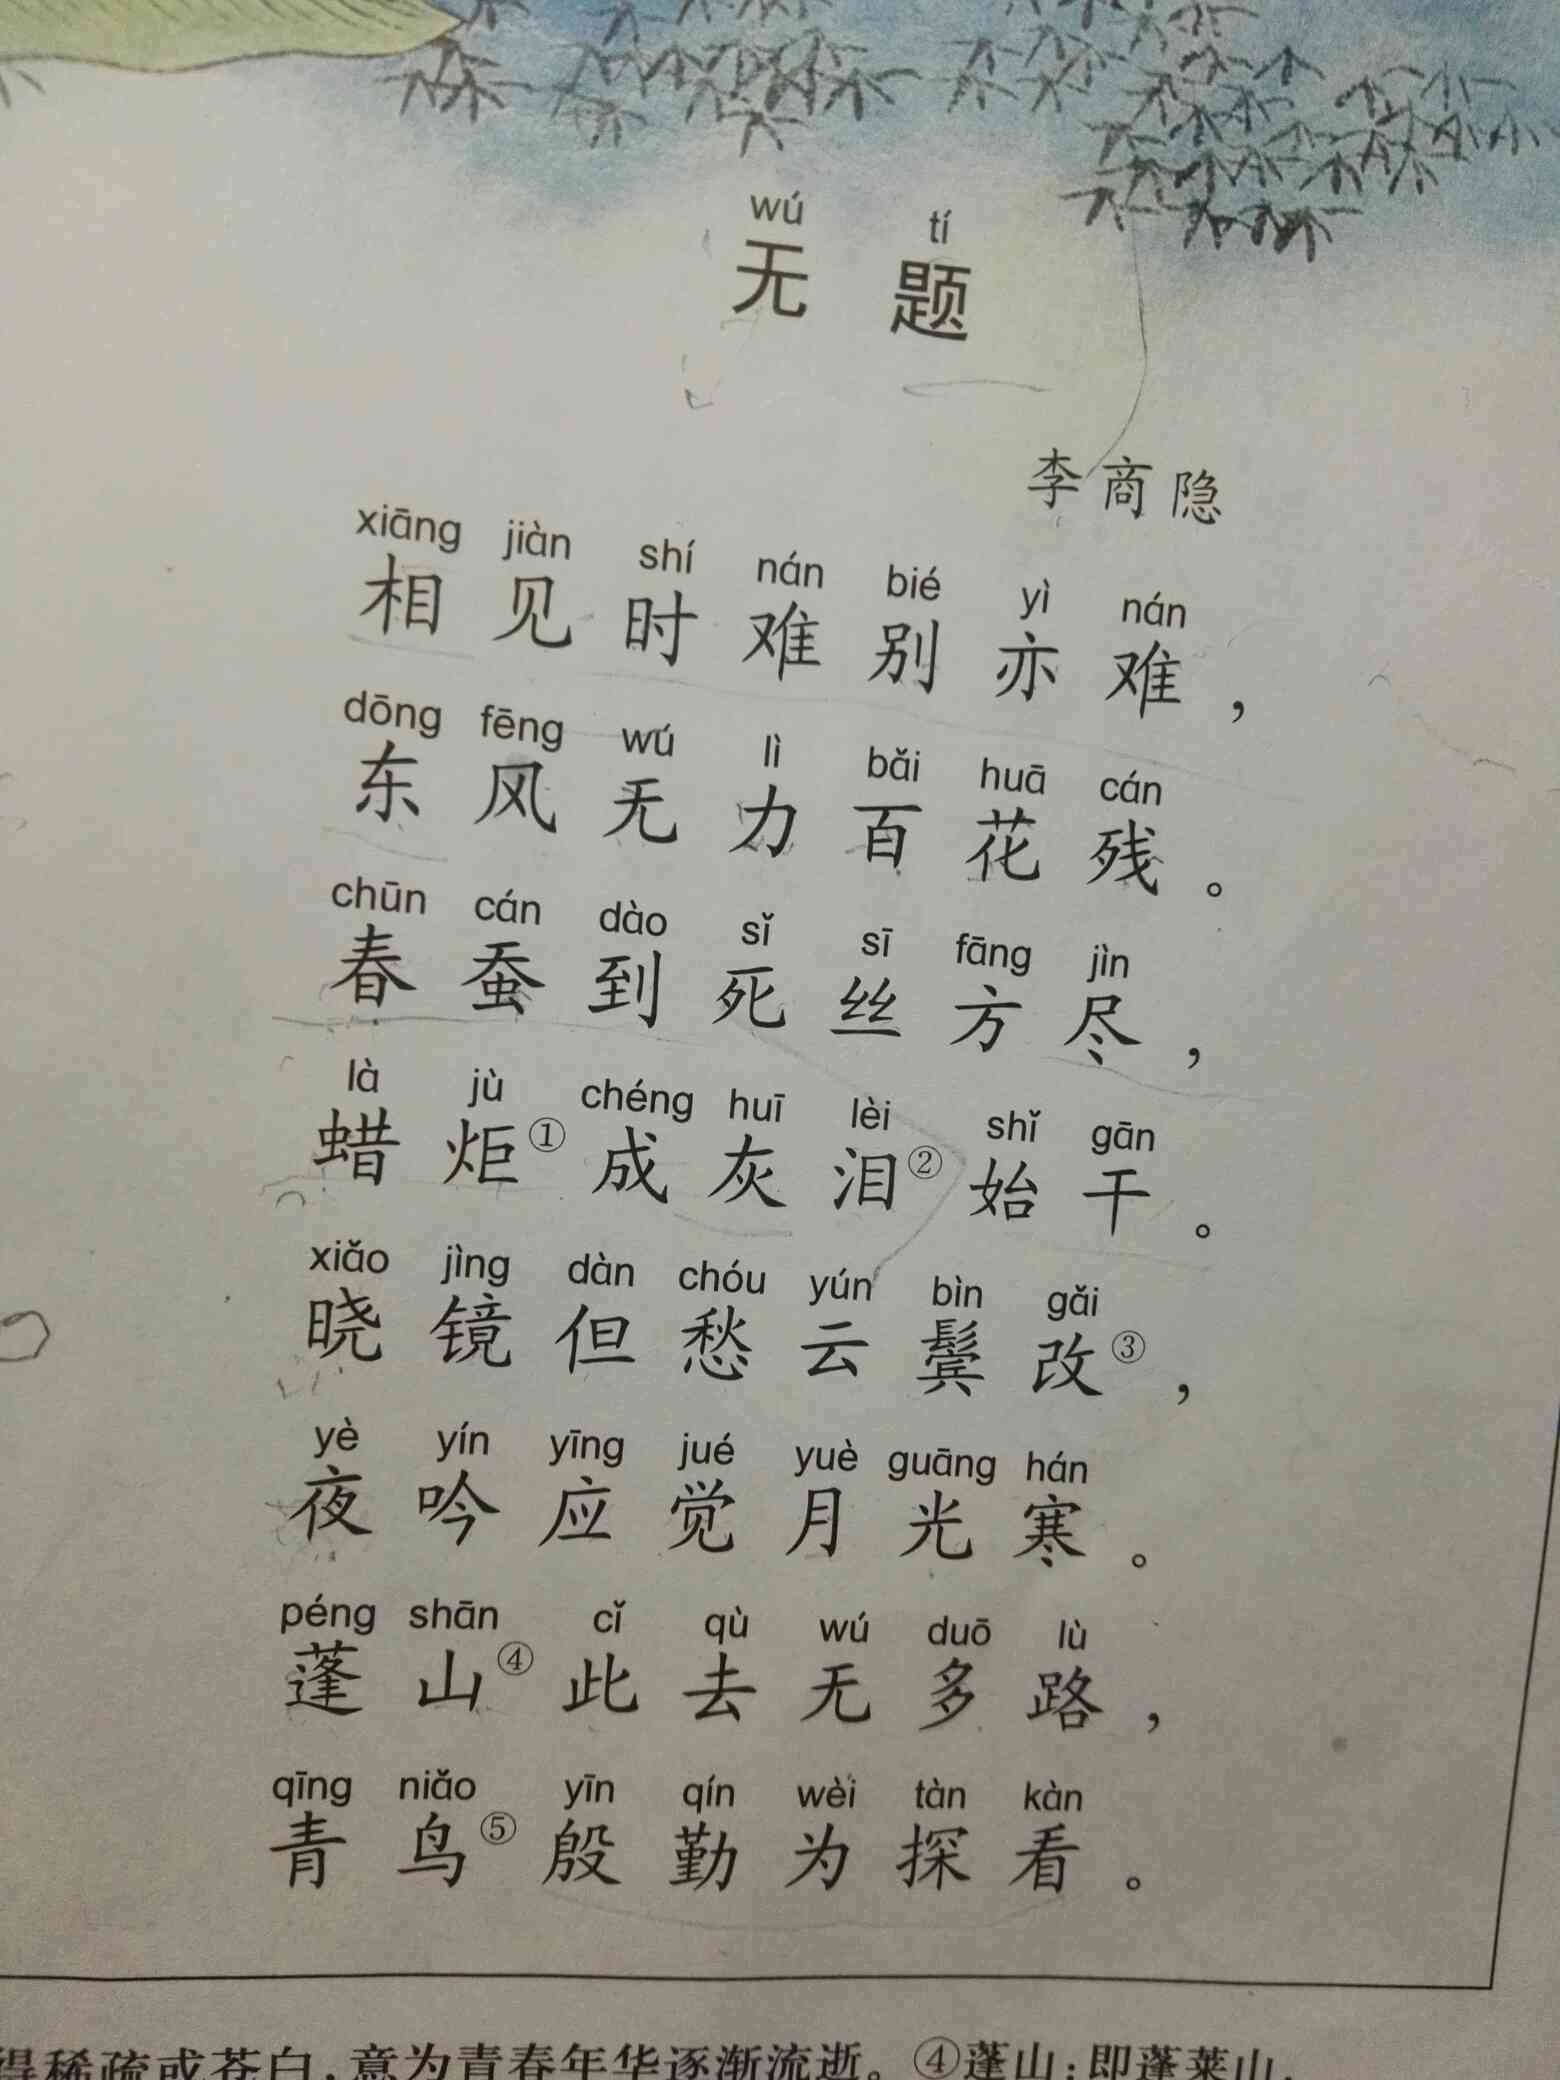 wú tí
无 题
李商隐
xiāng jiàn shí nán bié yì nán
相见时难别亦难，
dōng fēng wú lì bǎi huā cán
东风无力百花残。
chūn cán dào sǐ sī fāng jìn
春蚕到死丝方尽，
là jù chéng huī lèi shǐ gān
蜡炬①成灰泪②始干。
xiǎo jìng dàn chóu yún bìn gǎi
晓镜但愁云鬓改③，
yè yín yīng jué yuè guāng hán
夜吟应觉月光寒。
péng shān cǐ qù wú duō lù
蓬山④此去无多路，
qīng niǎo yīn qín wèi tàn kàn
青鸟⑤殷勤为探看。
得稀疏或苍白，意为青春年华逐渐流逝。④蓬山：即蓬莱山，